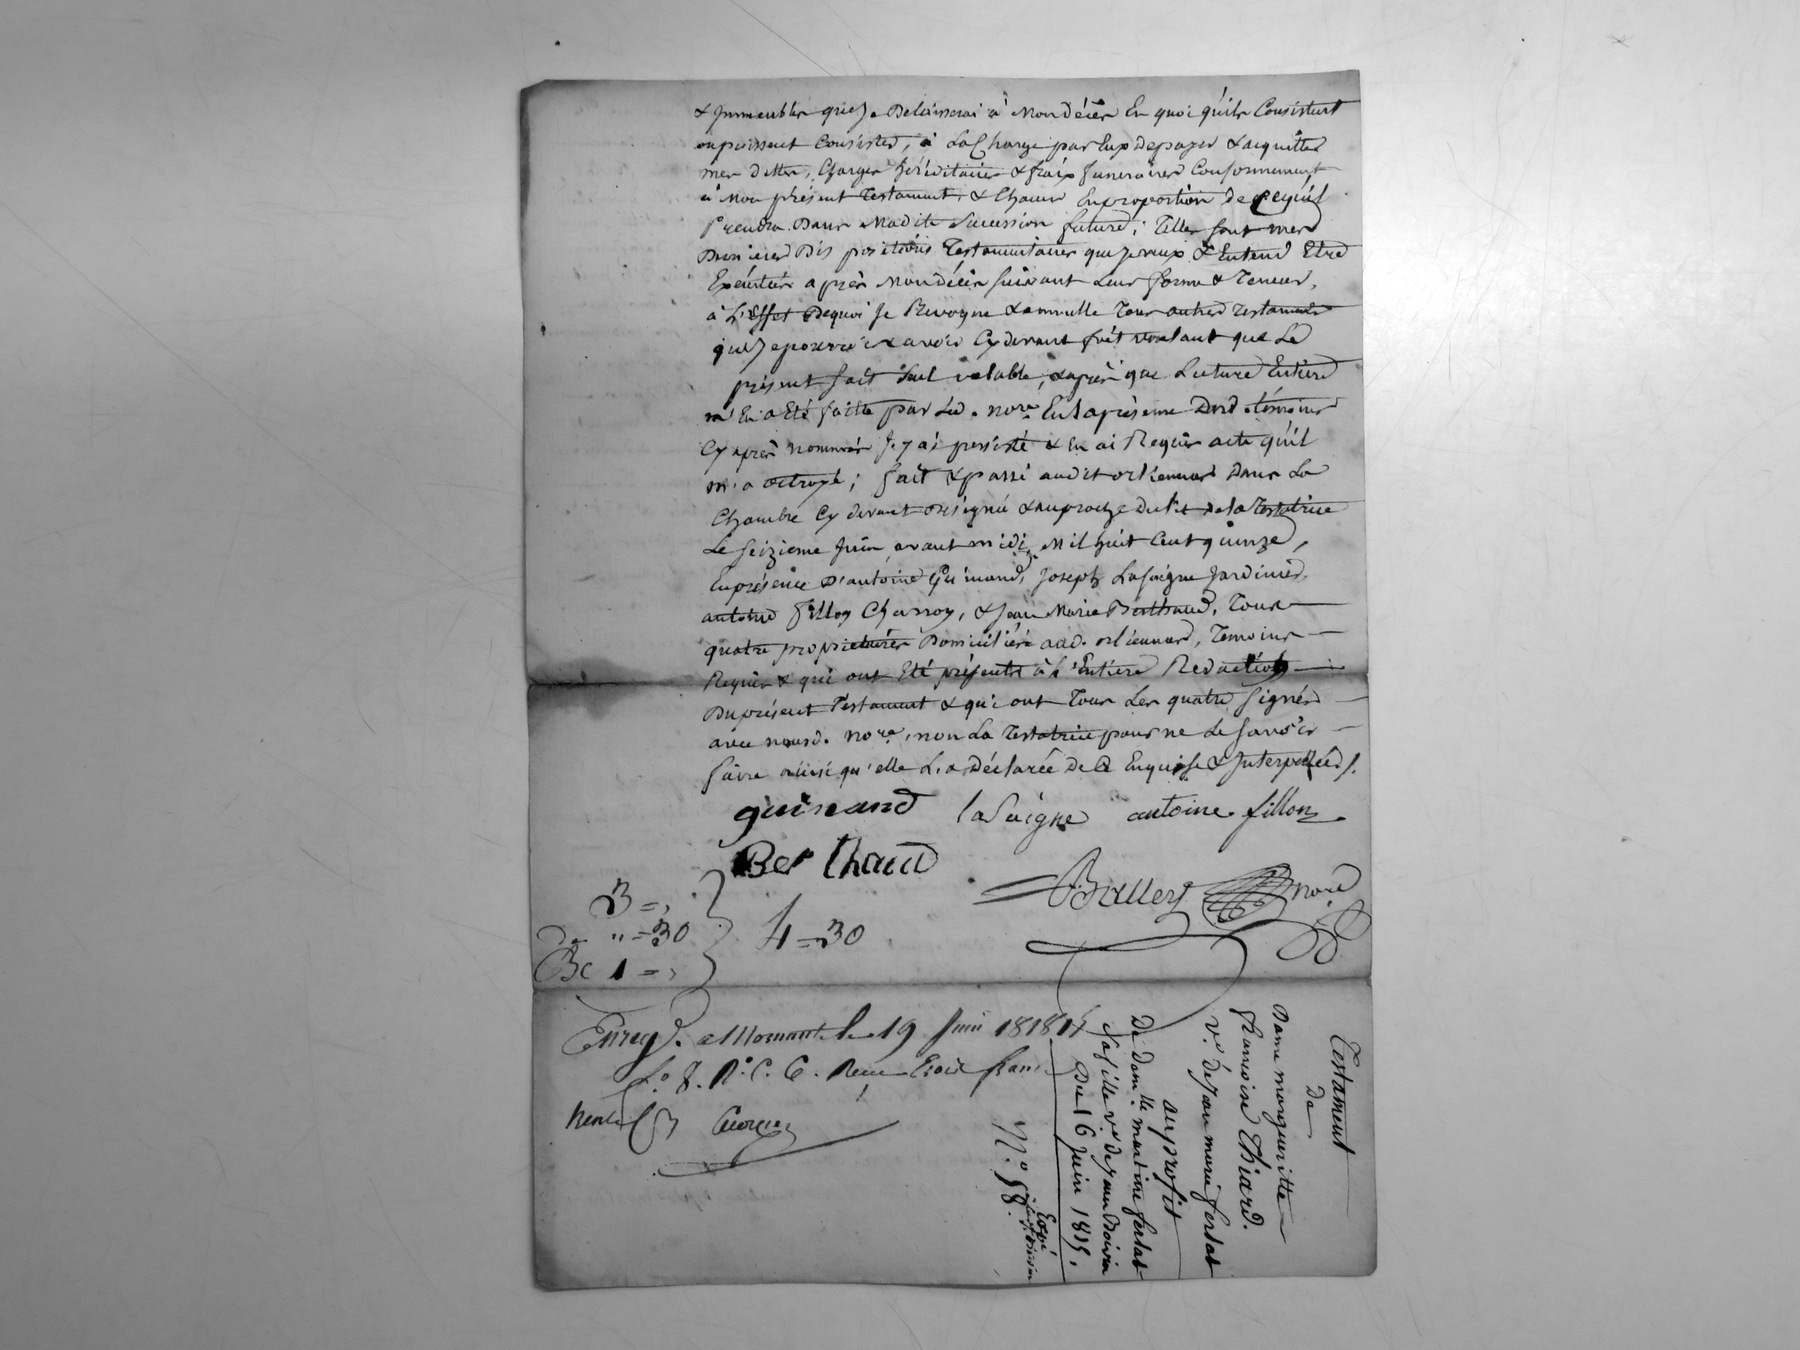 & Immeubles que Je Delaisserai à Mon décès En quoi qu'ils Consistent
ou puissent Consister, à La Charge par Eux de payer & acquitter
mes dettes, Charges héréditaires & fraix funeraires Conformement
à Mon présent Testament, & Chacun En proportion de Ce qu'il
Prendra Dans Madite Succession future; Telles sont mes
Dernieres Dispositions Testamentaires que Je veux & Entend Etre
Exécutées après Mon décès suivant Leur forme & Teneur,
à L'Effet Dequoi Je Revoque & annulle Tous autres Testaments
que Je pourrois avoir Cydevant fait voulant que Le
présent soit Seul valable, & après que Lecture Entiere
m'En a Eté faitte par Led. nore. En la présence Desd. témoins
Cy après nommés J'y ai persisté & En ai Requis acte qu'il
m'a octroyé; fait & passé audit orliennas Dans La
Chambre Cy devant désignée & auprocge du lit de la Testatrice
Le Seizieme Juin avant midi, Mil huit Cent quinze,
En présence D'antoine Guinand, Joseph LaSaigne Jardinier,
antoine fillon Charron, & Jean Marie Berthaud, Tous
quatre propriétaires Domiciliés aud. orliennas, Temoins
Requis & qui ont Eté présents à L'Entiere Redaction
Du présent Testament & qui ont Tous Les quatre Signés
avec nousd. nore, non La Testatrice pour ne Le Savoir
faire ainsi qu'elle L'a Déclarée De Ce Enquise & Interpellée /.
guinand laSaigne antoine fillon
Berthaud
Balley nore.
3 = ,
De " = 30
4 = 30
1 = ,
Enregé. a Mornant le 19 Juin 1815
fo. 8. Ro. C. 6. Recu trois francs
Testament
De
Dame margueritte
francoise Thiard.
ve. de Jean marie ferlat
au profit
De Damlle. martine ferlat
Sa fille ve. de Jean Boiron
Du 16 Juin 1815.
No. 58.
Expé